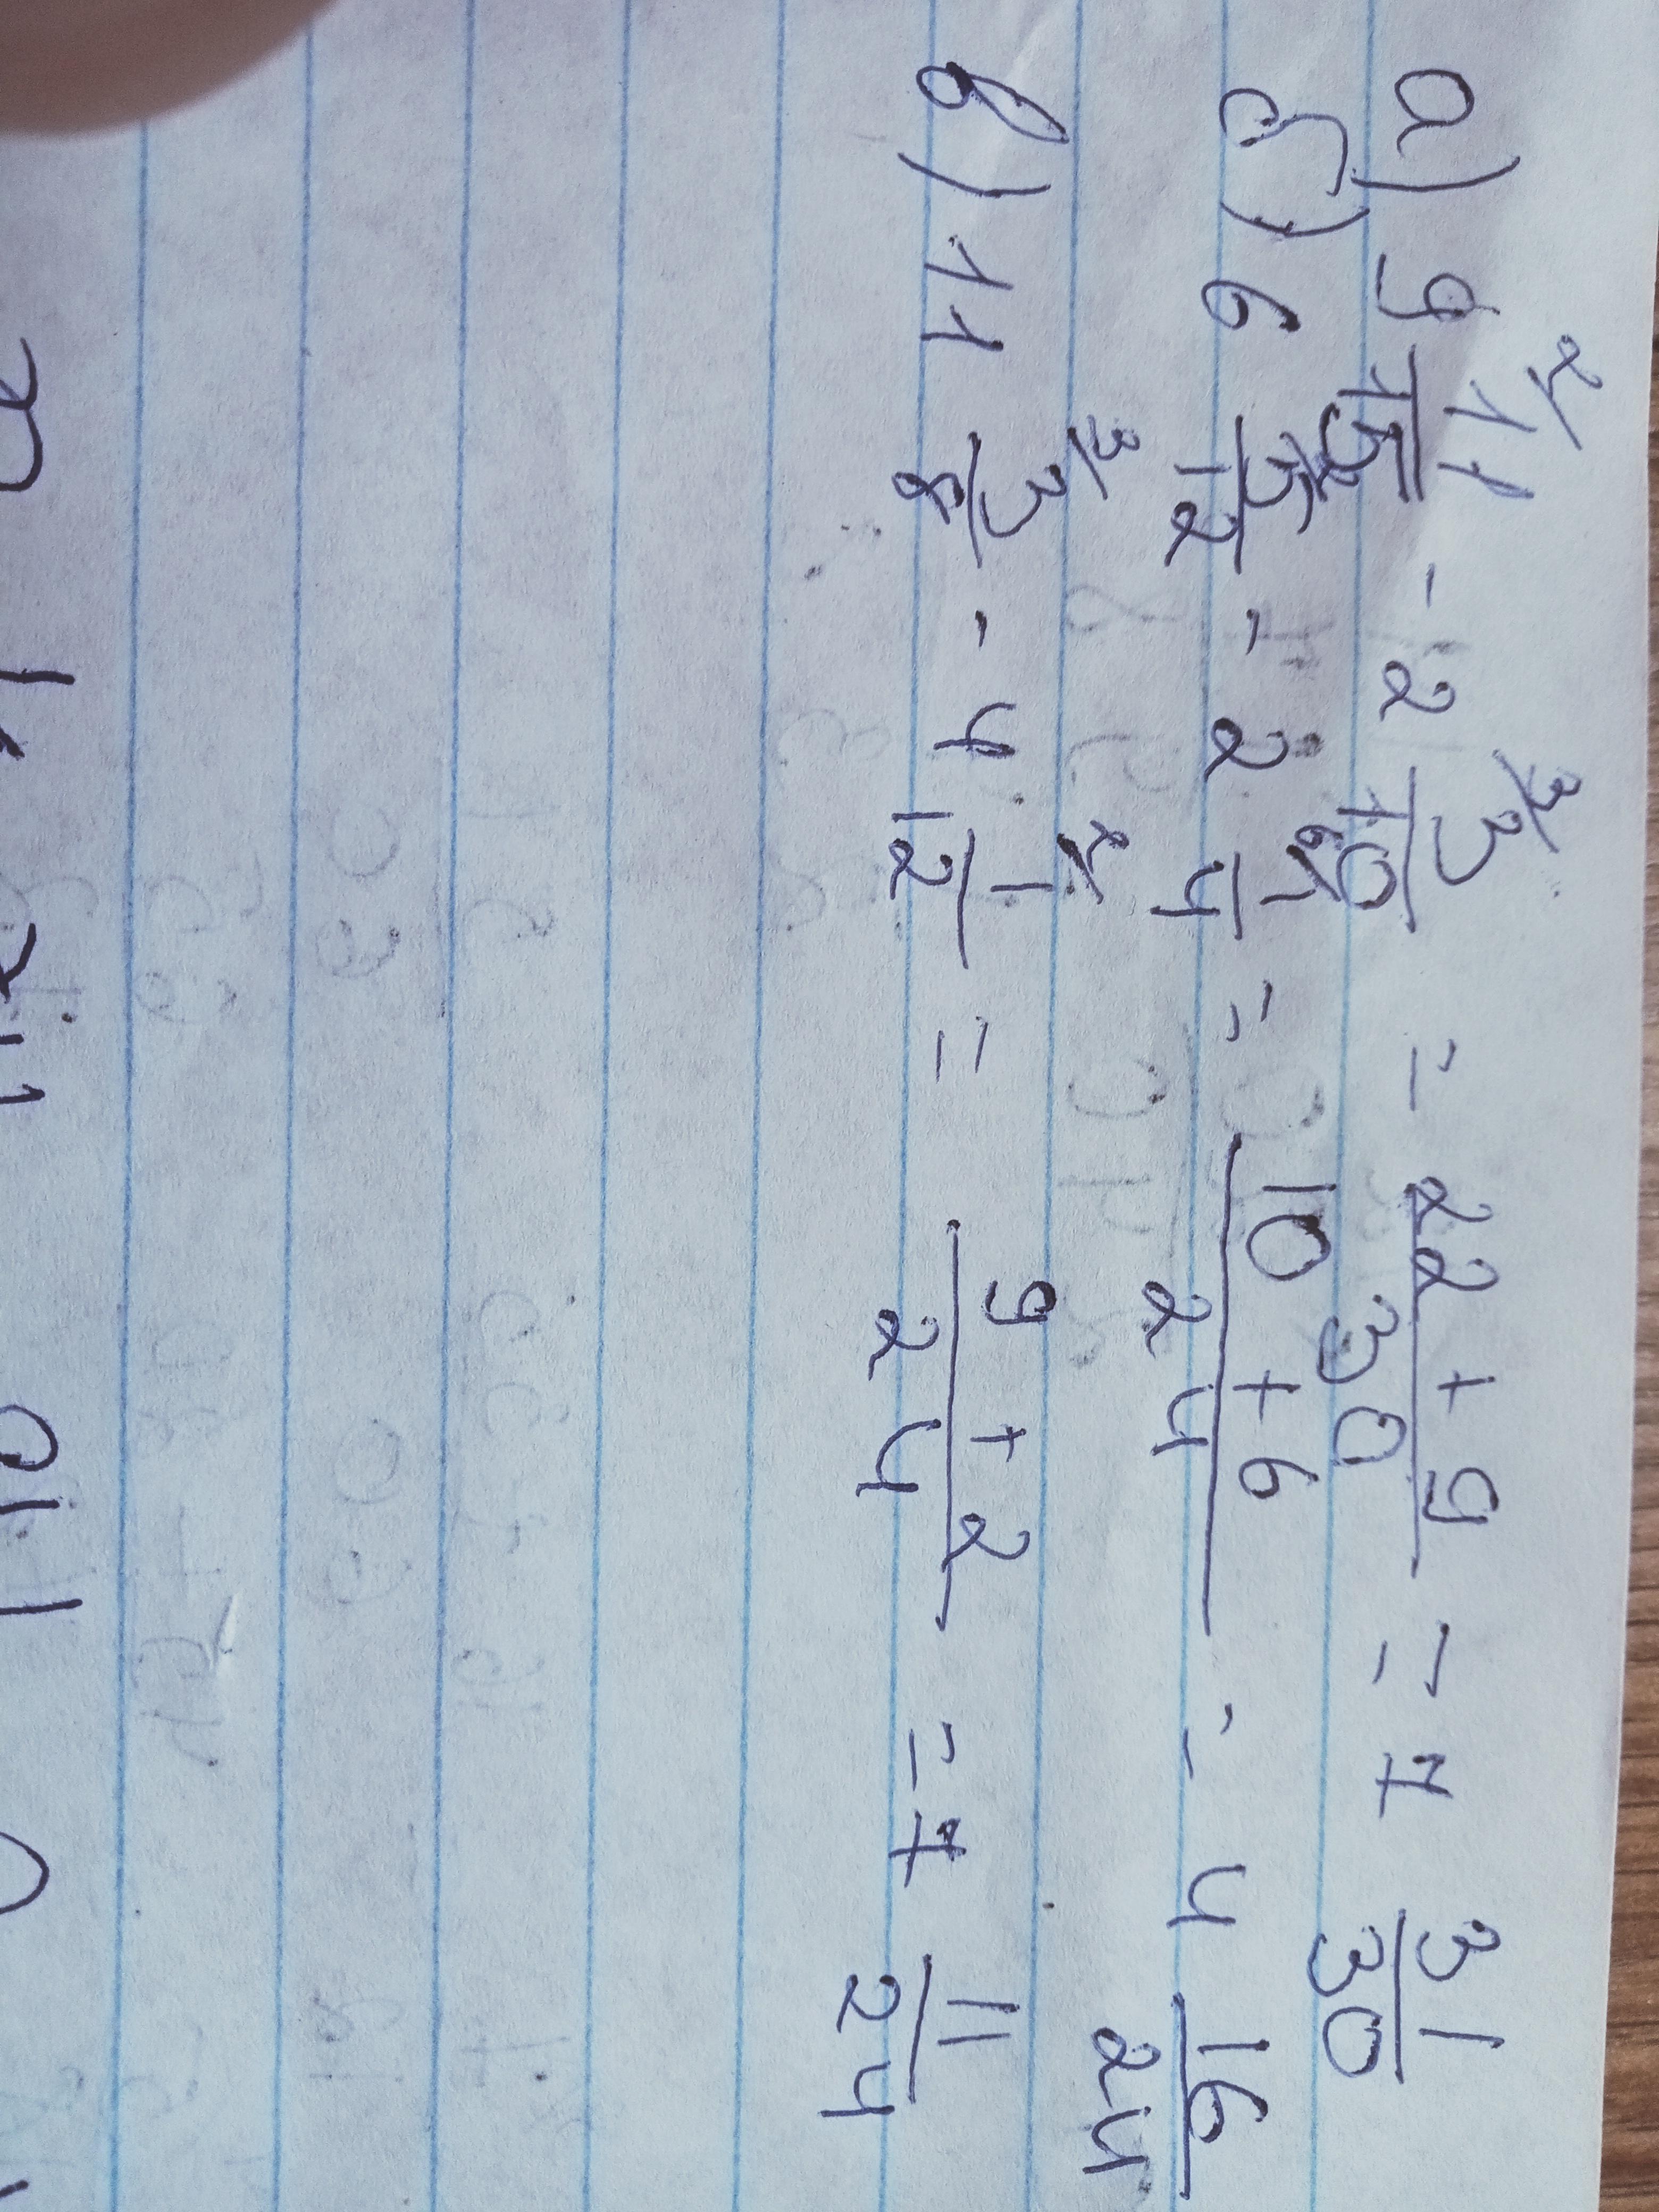 а) 9 11/15 - 2 3/10 = 22 + 9/30 = 7 31/30
б) 6 5/12 - 2 1/4 = 10 + 6/24 = 4 16/24
в) 11 3/8 - 4 1/12 = 9 + 2/24 = 7 11/24